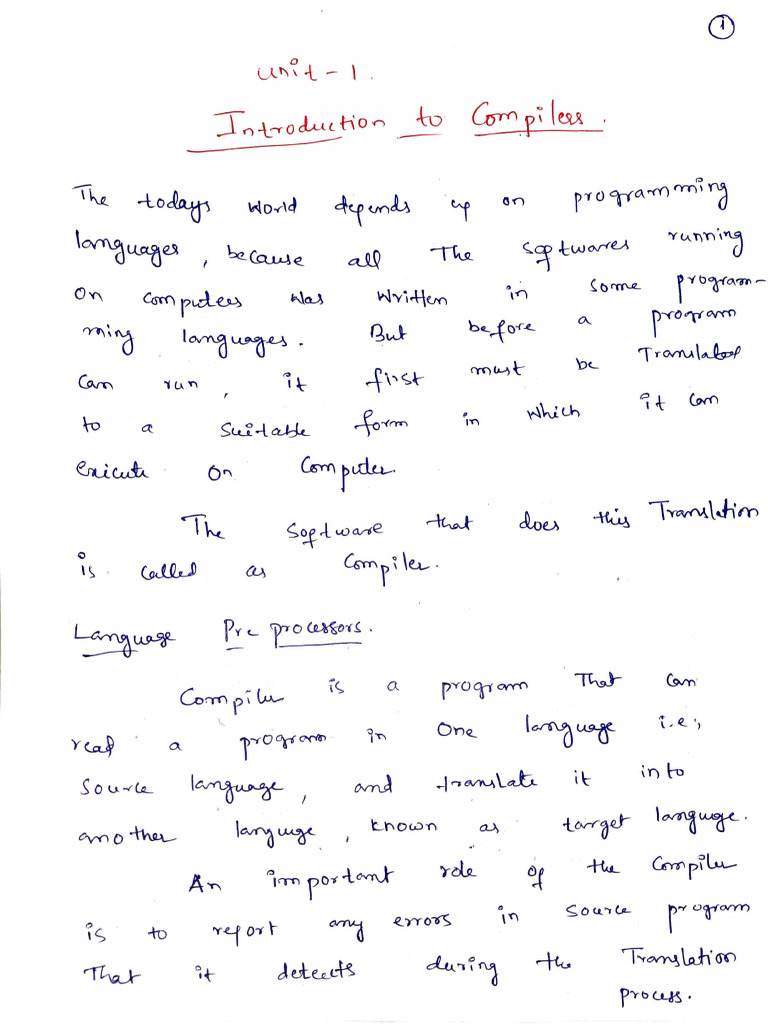 1
Unit - 1.
Introduction to Compilers.
The todays world depends up on programming
languages, because all The softwares running
on computers was written in some program-
ming languages. But before a program
can run, it first must be Translated
to a suitable form in which it can
exicute on Computer.
The software that does this Translation
is called as Compiler.
Language Pre processors.
Compiler is a program That can
read a program in one language i.e;
source language, and translate it into
another language, known as target language.
An important role of the Compiler
is to report any errors in source program
That it detects during the Translation
process.